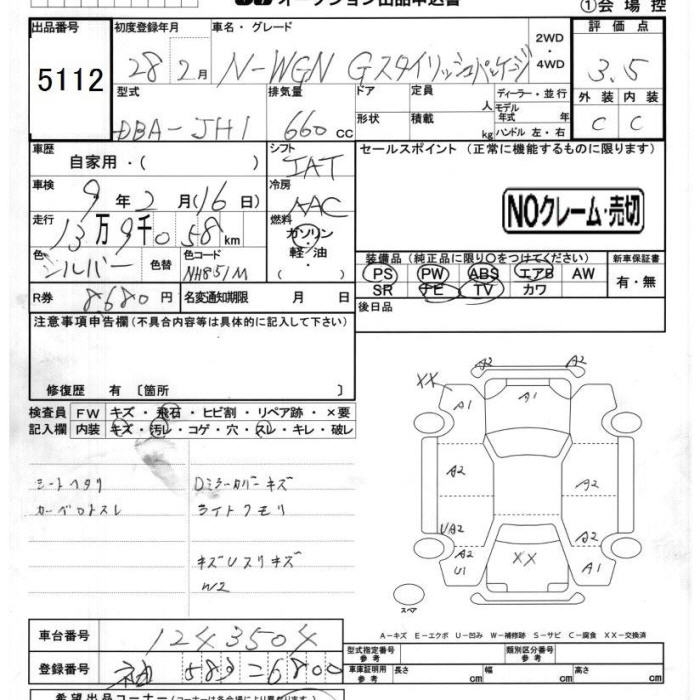 オークション出品申込書
①会場控
出品番号
5112
初度登録年月
28 2月
車名・グレード
N-WGN Gスタイリッシュパッケージ
2WD・4WD
評価点
3.5
型式
DBA-JH1
排気量
660 cc
ドア
形状
定員 人
積載 kg
ディーラー・並行
モデル年式 年
ハンドル 左・右
外装 内装
C C
車歴
自家用・( )
シフト
IAT
セールスポイント(正常に機能するものに限ります)
車検
9年2月(16日)
冷房
AAC
NOクレーム・売切
走行
13万9千058km
燃料
ガソリン・軽油
( )
色
シルバー
色替
色コード
NH851M
装備品(純正品に限り○をつけてください)
PS PW ABS エアB AW
SR ナビ TV カワ
新車保証書
有・無
R券 8680円
名変通知期限 月 日
後日品
注意事項申告欄(不具合内容等は具体的に記入して下さい)
修復歴 有〔箇所 〕
検査員記入欄
FW キズ・飛石・ヒビ割・リペア跡・×要
内装 キズ・汚レ・コゲ・穴・スレ・キレ・破レ
シートヘタリ
Dミラーカバーキズ
ライトクモリ
キズUスリキズ
W2
A2 A2
XX
A1 A1
A2 A2
UA2 A2
A2 U1
XX
A1
スペア
A-キズ E-エクボ U-凹み W-補修跡 S-サビ C-腐食 XX-交換済
車台番号
1243504
登録番号
583 こ6800
型式指定番号 参考
類別区分番号 参考
車庫証明用 参考
長さ cm
幅 cm
高さ cm
希望出品コーナー(コーナーは各会場により異なります)